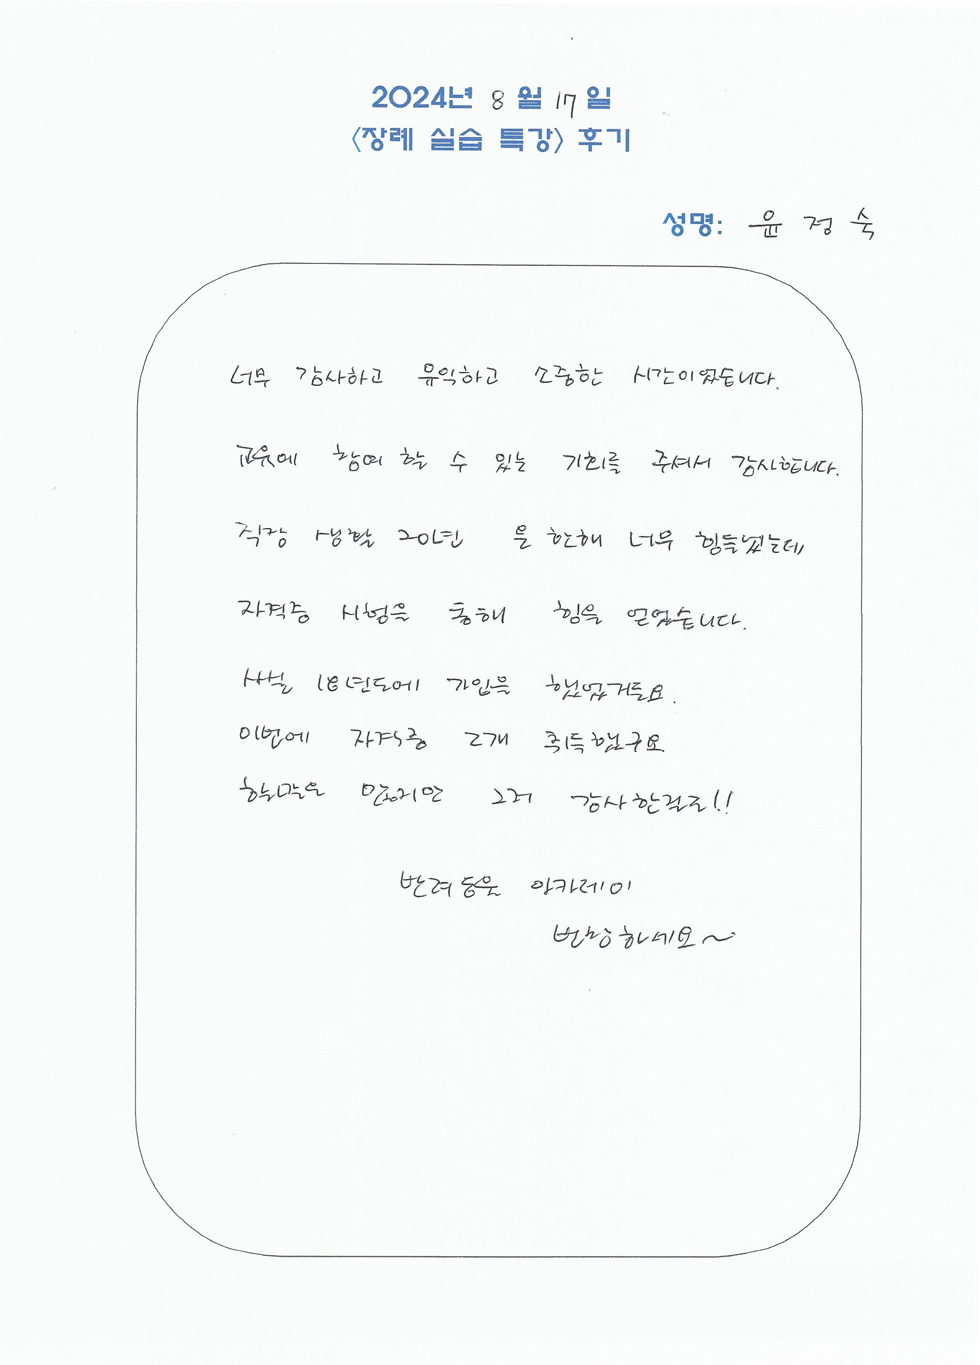 2024년 8월 17일
<장례 실습 특강> 후기
성명: 윤정숙
너무 감사하고 유익하고 소중한 시간이었습니다.
교육에 참여 할 수 있는 기회를 주셔서 감사합니다.
직장 생활 20년 올 한해 너무 힘들었는데
자격증 시험을 통해 힘을 얻었습니다.
사실 18년도에 가입을 했었거든요.
이번에 자격증 2개 취득했구요
할말은 많지만 그저 감사한걸로!!
반려동물 아카데미
번창하세요~